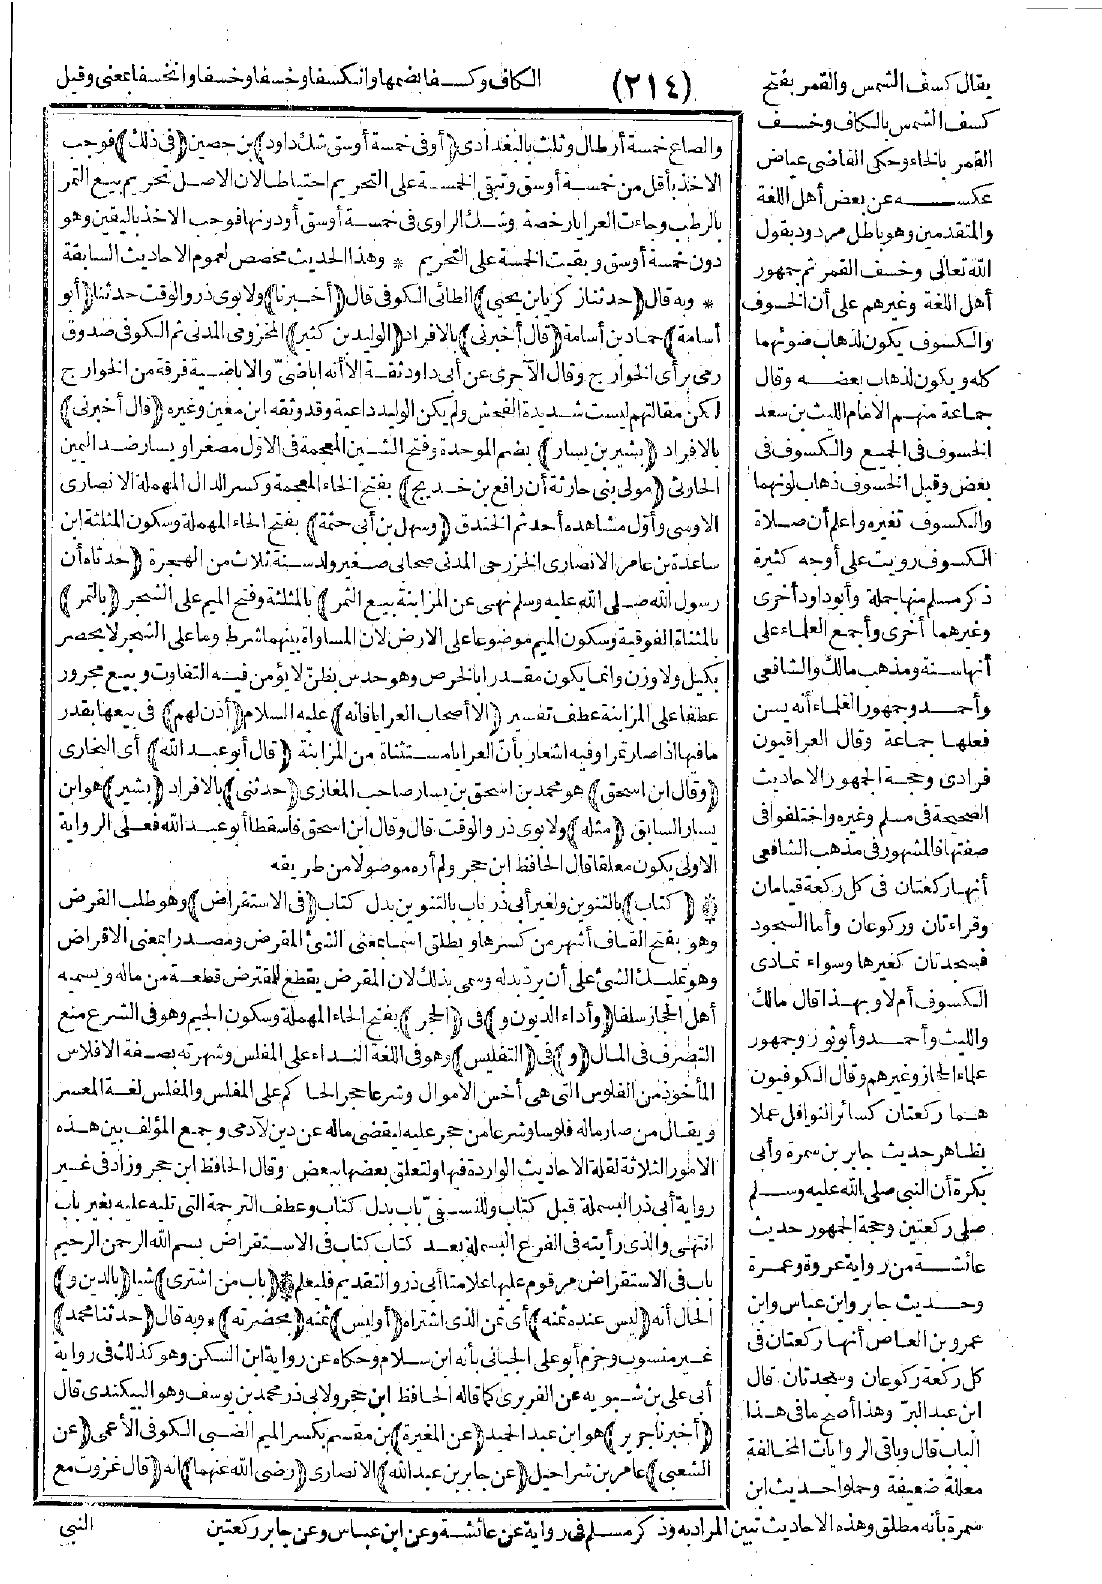 (٢١٤)
يقال كسف الشمس والقمر بفتح
الكاف وكسفا بضمها وانكسفا وخسفا وخسفا وانخسفا بمعنى وقيل
كسف الشمس بالكاف وخسف
القمر بالخاء وحكى القاضى عياض
عكسه عن بعض أهل اللغة
والمتقدمين وهو باطل مردود بقول
الله تعالى وخسف القمر ثم جمهور
أهل اللغة وغيرهم على أن الخسوف
والكسوف يكون لذهاب ضوئهما
كله ويكون لذهاب بعضه وقال
جماعة منهم الامام الليث بن سعد
الخسوف فى الجميع والكسوف فى
بعض وقيل الخسوف ذهاب لونهما
والكسوف تغيره واعلم أن صلاة
الكسوف رويت على أوجه كثيرة
ذكر مسلم منها جملة وأبوداود أخرى
وغيرهما أخرى وأجمع العلماء على
أنها سنة ومذهب مالك والشافعى
وأحمد وجمهور العلماء أنه يسن
فعلها جماعة وقال العراقيون
فرادى وحجة الجمهور الاحاديث
الصحيحة فى مسلم وغيره واختلفوا فى
صفتها فالمشهور فى مذهب الشافعى
أنها ركعتان فى كل ركعة قيامان
وقراءتان وركوعان وأما السجود
فسجدتان كغيرها وسواء تمادى
الكسوف أم لا وبهذا قال مالك
والليث وأحمد وأبوثور وجمهور
علماء الحجاز وغيرهم وقال الكوفيون
هما ركعتان كسائر النوافل عملا
بظاهر حديث جابر بن سمرة وأبى
بكرة أن النبي صلى الله عليه وسلم
صلى ركعتين وحجة الجمهور حديث
عائشة من رواية عروة وعمرة
وحديث جابر وابن عباس وابن
عمرو بن العاص أنها ركعتان فى
كل ركعة ركوعان وسجدتان قال
ابن عبد البر وهذا أصح ما فى هذا
الباب قال وباقى الروايات المخالفة
معللة ضعيفة وحملوا حديث ابن
سمرة بأنه مطلق وهذه الاحاديث تبين المراد به وذكر مسلم فى رواية عن عائشة وعن ابن عباس وعن جابر ركعتين
والصاع خمسة أرطال وثلث بالبغدادى (أوفى خمسة أوسق شك داود) بن حصين (فى ذلك) فوجب
الاخذ بأقل من خمسة أوسق وتبقى الخمسة على التحريم احتياطا لان الاصل تحريم بيع التمر
بالرطب وجاءت العرايا رخصة وشك الراوى فى خمسة أوسق أودونها فوجب الاخذ باليقين وهو
دون خمسة أوسق وبقيت الخمسة على التحريم * وهذا الحديث مخصص لعموم الاحاديث السابقة
* وبه قال (حدثنا زكريا بن يحيى) الطائى الكوفى قال (أخبرنا) ولابوى ذر والوقت حدثنا (أبو
أسامة) حماد بن أسامة (قال أخبرنى) بالافراد (الوليد بن كثير) المخزومى المدنى ثم الكوفى صدوق
رمى برأى الخوارج وقال الآجرى عن أبى داود ثقة الا أنه اباضىّ والاباضية فرقة من الخوارج
لكن مقالتهم ليست شديدة الفحش ولم يكن الوليد داعية وقد وثقه ابن معين وغيره (قال أخبرنى)
بالافراد (بشير بن يسار) بضم الموحدة وفتح الشين المعجمة فى الاول مصغرا ويسار ضد اليمين
الحارثى (مولى بنى حارثة أن رافع بن خديج) بفتح الخاء المعجمة وكسر الدال المهملة الانصارى
الاوسى وأوّل مشاهده أحد ثم الخندق (وسهل بن أبى حثمة) بفتح الحاء المهملة وسكون المثلثة ابن
ساعدة بن عامر الانصارى الخزرجى المدنى صحابى صغير ولد سنة ثلاث من الهجرة (حدثاه أن
رسول الله صلى الله عليه وسلم نهى عن المزابنة بيع الثمر) بالمثلثة وفتح الميم على الشجر (بالتمر)
بالمثناة الفوقية وسكون الميم موضوعا على الارض لان المساواة بينهما شرط وما على الشجر لا يحصر
بكيل ولا وزن وانما يكون مقدرا بالخرص وهو حدس بظنّ لا يؤمن فيه التفاوت وبيع مجرور
عطفا على المزابنة عطف تفسير (الا أصحاب العرايا فانه) عليه السلام (أذن لهم) فى بيعها بقدر
ما فيها اذا صار تمرا وفيه اشعار بأنّ العرايا مستثناة من المزابنة (قال أبو عبد الله) أى البخارى
(وقال ابن اسحق) هو محمد بن اسحق بن يسار صاحب المغازى (حدثنى) بالافراد (بشير) هو ابن
يسار السابق (مثله) ولابوى ذر والوقت قال وقال ابن اسحق فاسقطا أبو عبد الله فعلى الرواية
الاولى يكون معلقا قال الحافظ ابن حجر ولم أره موصولا من طريقه
* (كتاب) بالتنوين ولغير أبى ذر باب بالتنوين بدل كتاب (فى الاستقراض) وهو طلب القرض
وهو بفتح القاف أشهر من كسرها ويطلق اسما بمعنى الشئ المقرض ومصدرا بمعنى الاقراض
وهو تمليك الشئ على أن يرد بدله وسمى بذلك لان المقرض يقطع للمقترض قطعة من ماله ويسميه
أهل الحجاز سلفا (وأداء الديون و) فى (الحجر) بفتح الحاء المهملة وسكون الجيم وهو فى الشرع منع
التصرف فى المال (و) فى (التفليس) وهو فى اللغة النداء على المفلس وشهرته بصفة الافلاس
المأخوذ من الفلوس التى هى أخس الاموال وشرعا حجر الحاكم على المفلس والمفلس لغة المعسر
ويقال من صار ماله فلوسا وشرعا من حجر عليه ليقضى ماله عن دين لآدمى وجمع المؤلف بين هذه
الامور الثلاثة لقلة الاحاديث الواردة فيها ولتعلق بعضها ببعض وقال الحافظ ابن حجر وزاد فى غير
رواية أبى ذر البسملة قبل كتاب وللنسفىّ باب بدل كتاب وعطف الترجمة التى تليه عليه بغير باب
انتهى والذى رأيته فى الفرع البسملة بعد كتاب كتاب فى الاستقراض بسم الله الرحمن الرحيم
باب فى الاستقراض مرقوم عليها علامتا أبى ذر والتقديم فليعلم * (باب من اشترى) شيا (بالدين و)
الحال أنه (ليس عنده ثمنه) أى ثمن الذى اشتراه (أوليس) ثمنه (بحضرته) * وبه قال (حدثنا محمد)
غير منسوب وجزم أبو على الجيانى بأنه ابن سلام وحكاه عن رواية ابن السكن وهو كذلك فى رواية
أبى على بن شبويه عن الفربرى كما قاله الحافظ ابن حجر ولابى ذر محمد بن يوسف وهو البيكندى قال
(أخبرنا جرير) هو ابن عبد الحميد (عن المغيرة) بن مقسم بكسر الميم الضبى الكوفى الأعمى (عن
الشعبى) عامر بن شراحيل (عن جابر بن عبد الله) الانصارى (رضى الله عنهما) انه (قال غزوت مع
النبى